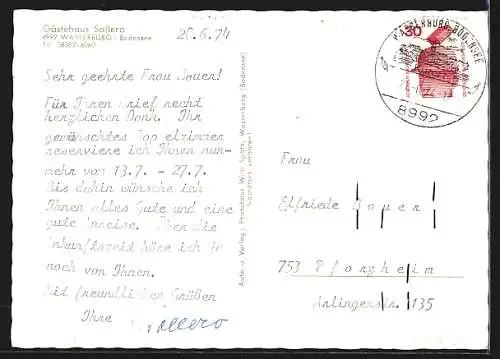 Gästehaus Sallero
8992 WASSERBURG / Bodensee
Tel. 08382-6060
20.6.74
Sehr geehrte Frau Bauer!
Für Ihren Brief recht
herzlichen Dank. Ihr
gewünschtes Doppelzimmer
reserviere ich Ihnen nun-
mehr vom 13.7. - 27.7.
Bis dahin wünsche ich
Ihnen alles Gute und eine
gute Anreise. Über die
Ankunftszeit höre ich ja
noch von Ihnen.
Mit freundlichen Grüßen
Ihre
Sallero
Aufn. u. Verlag: Photohaus Willi Wasserburg (Bodensee)
Nachdruck verboten!
30
WASSERBURG BODENSEE
8992
Frau
Elfriede Bauer
753 Pforzheim
135